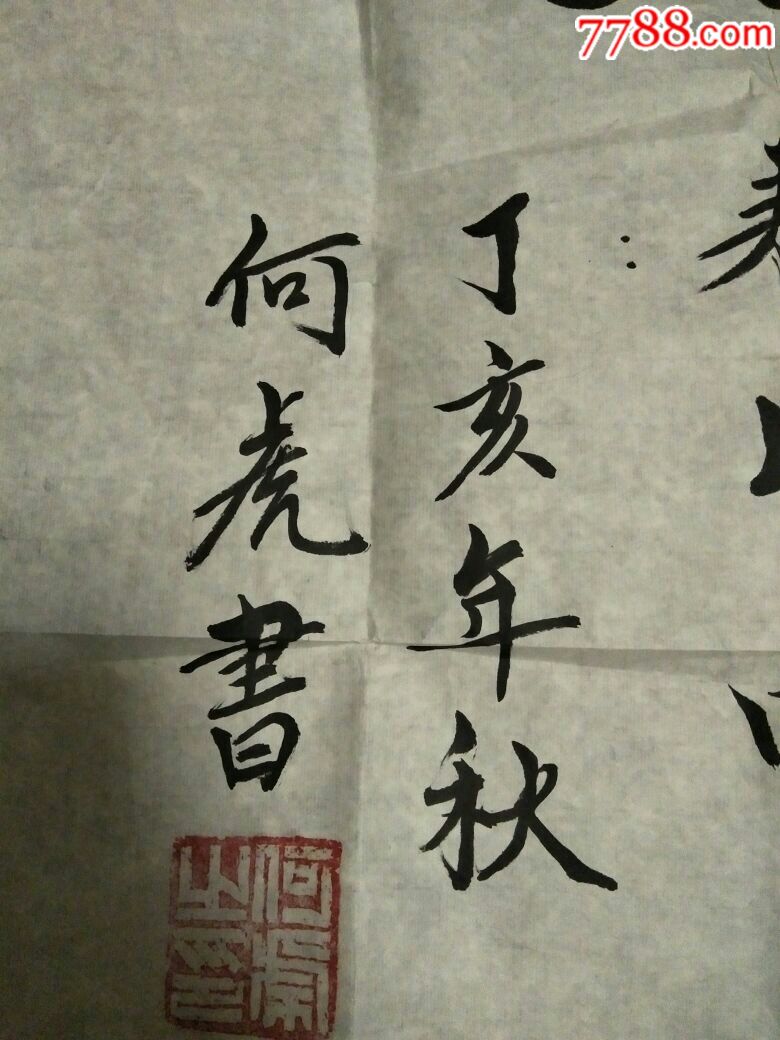 7788.com
丁亥年秋
何虎書
何虎之印